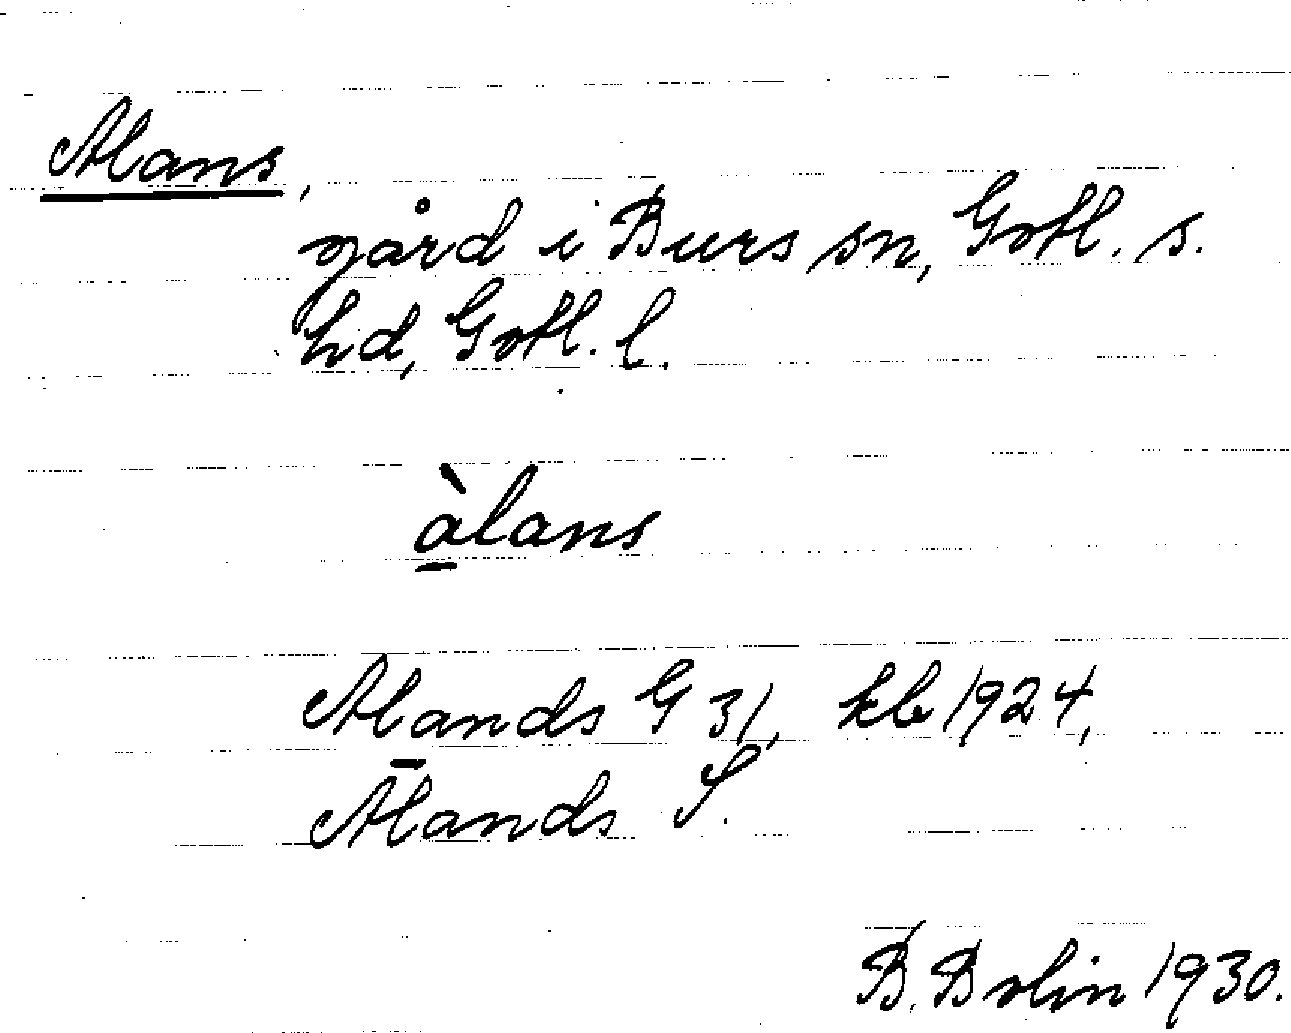 Alans,
gård i Burs sn, Gotl. s.
hd, Gotl. l.
àlans
Alands G 31, kb 1924,
Ālands S.
B. Bolin 1930.